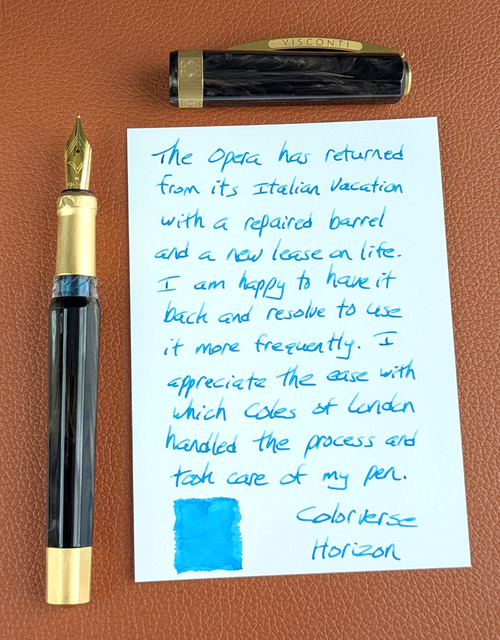 VISCONTI
The Opera has returned
from its Italian vacation
with a repaired barrel
and a new lease on life.
I am happy to have it
back and resolve to use
it more frequently. I
appreciate the ease with
which Coles of London
handled the process and
took care of my pen.
Colorverse
Horizon